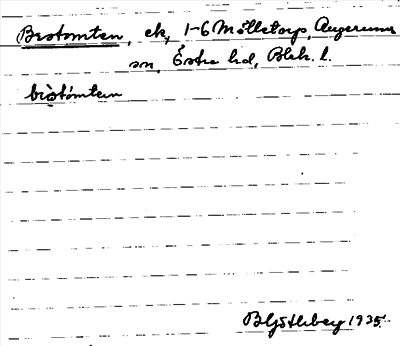 Bistomten, ek, 1-6 Mölletorp, Augerums
sn, Östra hd, Blek. l.
bistòmten
B Ljótleberg 1935.